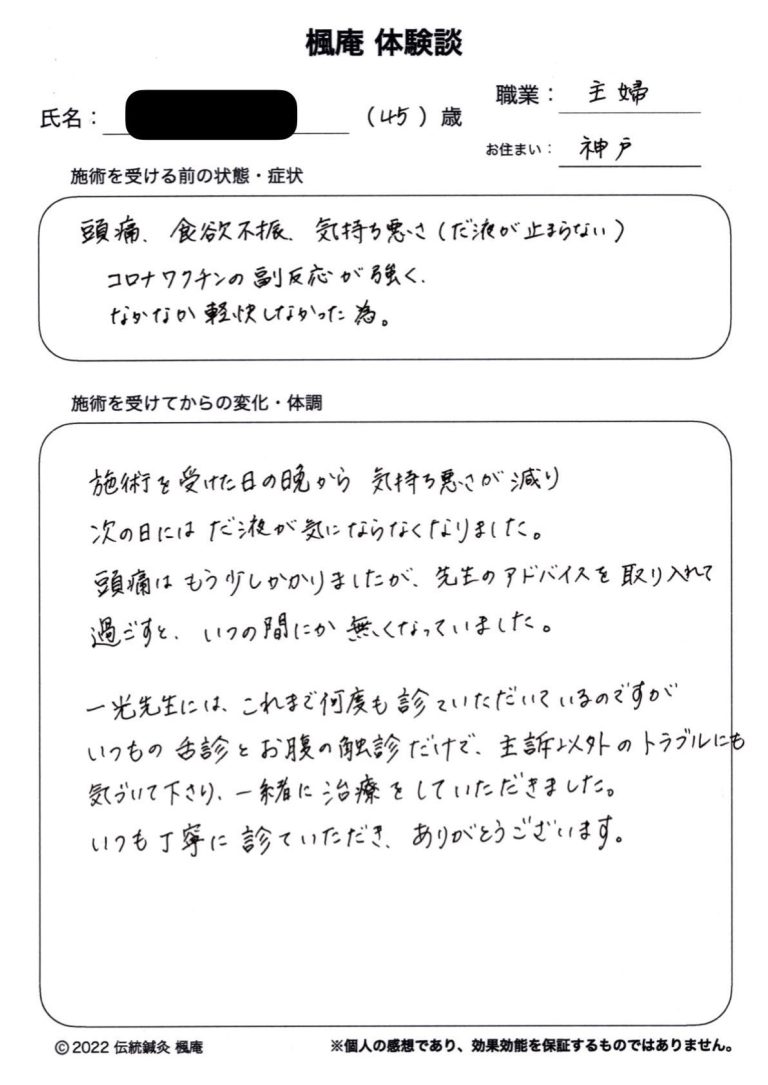 楓庵 体験談
氏名： （45）歳
職業： 主婦
お住まい： 神戸
施術を受ける前の状態・症状
頭痛、食欲不振、気持ち悪さ（だ液が止まらない）
コロナワクチンの副反応が強く、
なかなか軽快しなかった為。
施術を受けてからの変化・体調
施術を受けた日の晩から 気持ち悪さが減り
次の日には だ液が気にならなくなりました。
頭痛は もう少しかかりましたが、先生のアドバイスを取り入れて
過ごすと、いつの間にか無くなっていました。
一光先生には、これまで何度も診ていただいているのですが
いつもの舌診とお腹の触診だけで、主訴以外のトラブルにも
気づいて下さり、一緒に治療をしていただきました。
いつも丁寧に診ていただき、ありがとうございます。
©2022 伝統鍼灸 楓庵
※個人の感想であり、効果効能を保証するものではありません。